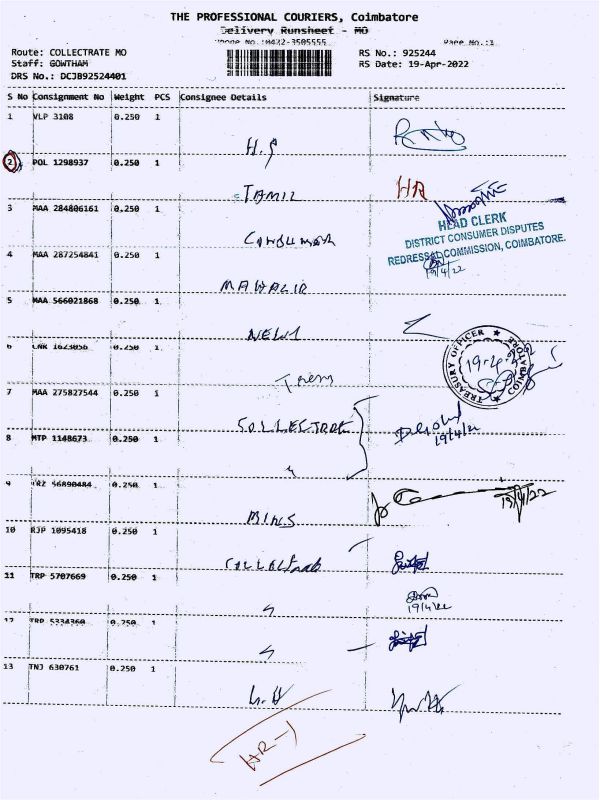 THE PROFESSIONAL COURIERS, Coimbatore
Delivery Runsheet - MO
Phone No.:0422-3505555 Page No.:1
Route: COLLECTRATE MO RS No.: 925244
Staff: GOWTHAM RS Date: 19-Apr-2022
DRS No.: DCJB92524401
S No Consignment No Weight PCS Consignee Details Signature
1 VLP 3108 0.250 1
H.S
2 POL 1298937 0.250 1
TAMIL HR
3 MAA 284806161 0.250 1
HEAD CLERK
DISTRICT CONSUMER DISPUTES
REDRESSAL COMMISSION, COIMBATORE.
19/4/22
4 MAA 287254841 0.250 1
5 MAA 566021868 0.250 1
NEWS
TREASURY OFFICER COIMBATORE
6 LNR 1623056 0.250 1
19-4-22
7 MAA 275827544 0.250 1
COLLECTRATE
19/4/22
8 MTP 1148673 0.250 1
9 TRZ 56890484 0.250 1
19/4/22
MINES
10 RJP 1095418 0.250 1
11 TRP 5707669 0.250 1
19/4/22
12 TRP 5334360 0.250 1
13 TNJ 630761 0.250 1
HR-1